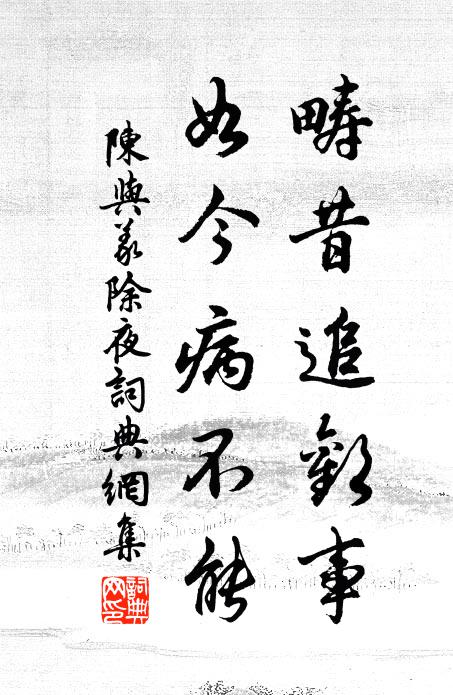 疇昔追歡事
如今病不能
陳與義除夜詞典網集
詞典網印